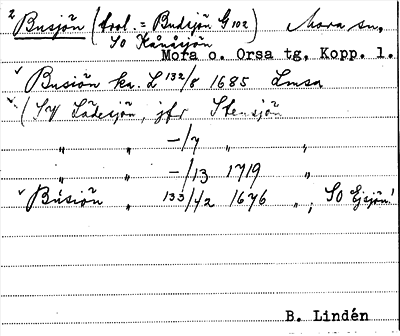 2 Busjön (trol. = Budsjön G 102) Mora sn,
SO Kånåsjön
Mora o. Orsa tg. Kopp. l.
√ Busiön ka. L 132/8 1685 Lmsa
√ (SV Lädesjön, jfr Stensjön
" " -/7 " "
" " -/13 1719 "
√ Busiön " 133/42 1676 ", SO Ejsjön!
B. Lindén